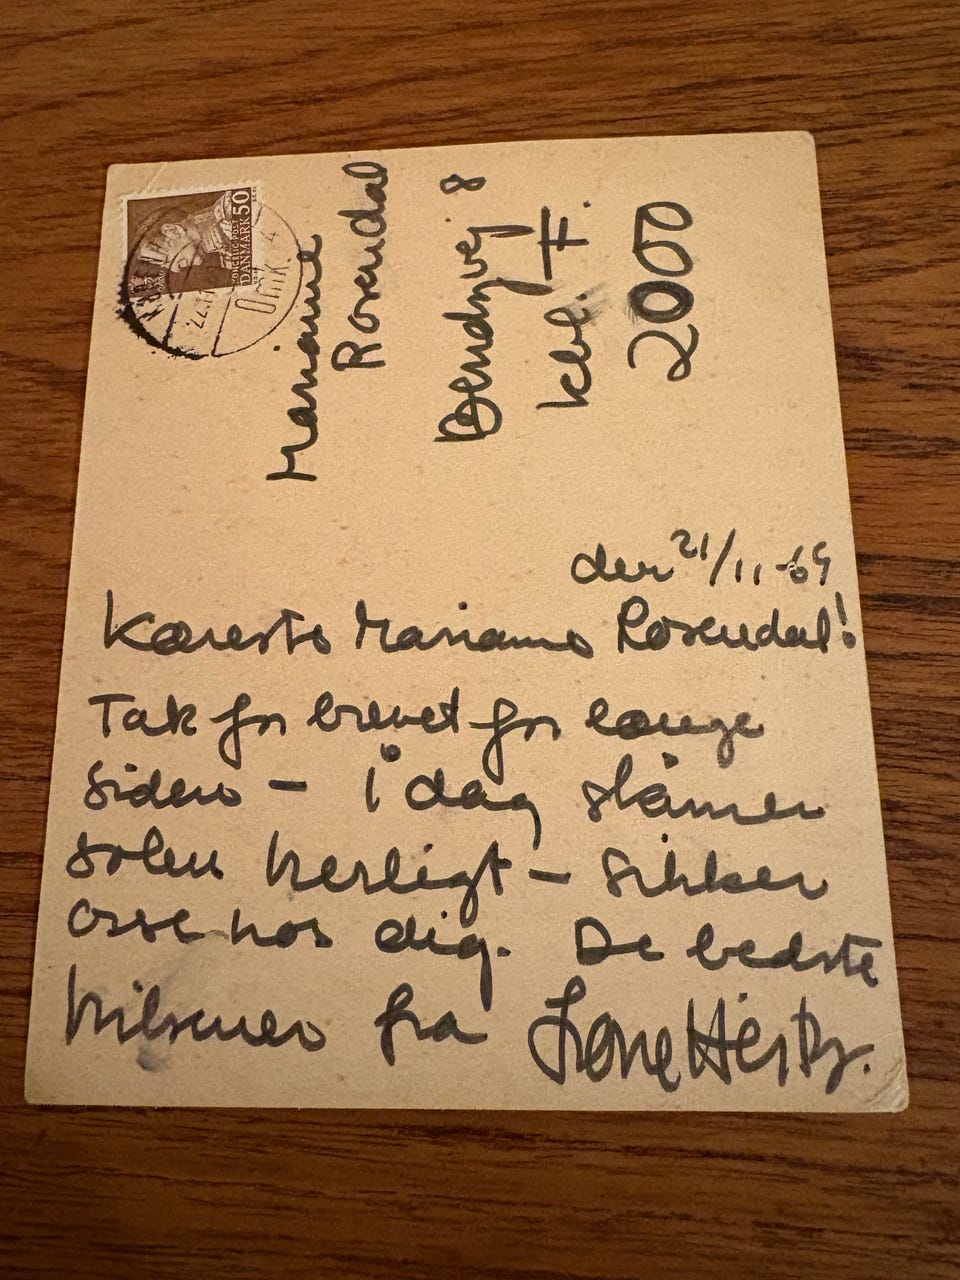 DANMARK 50
22.11
OMK. 4
Marianne
Rosendal
Bendzvej 8
Kbh. F.
2000
den 21/11-69
Kæreste Marianne Rosendal!
Tak for brevet for længe
siden – i dag skinner
solen herligt – sikker
osse hos dig. De bedste
hilsner fra Lone Hertz.